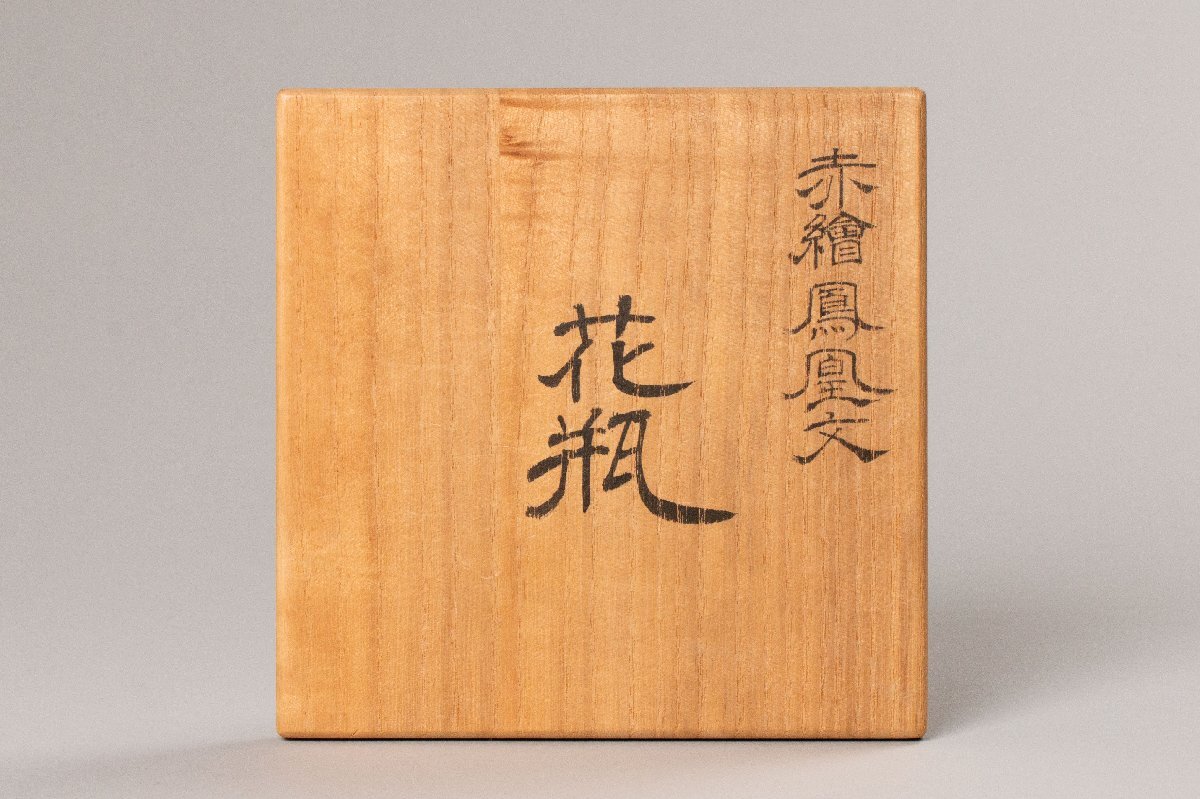 赤繪鳳凰文
花瓶